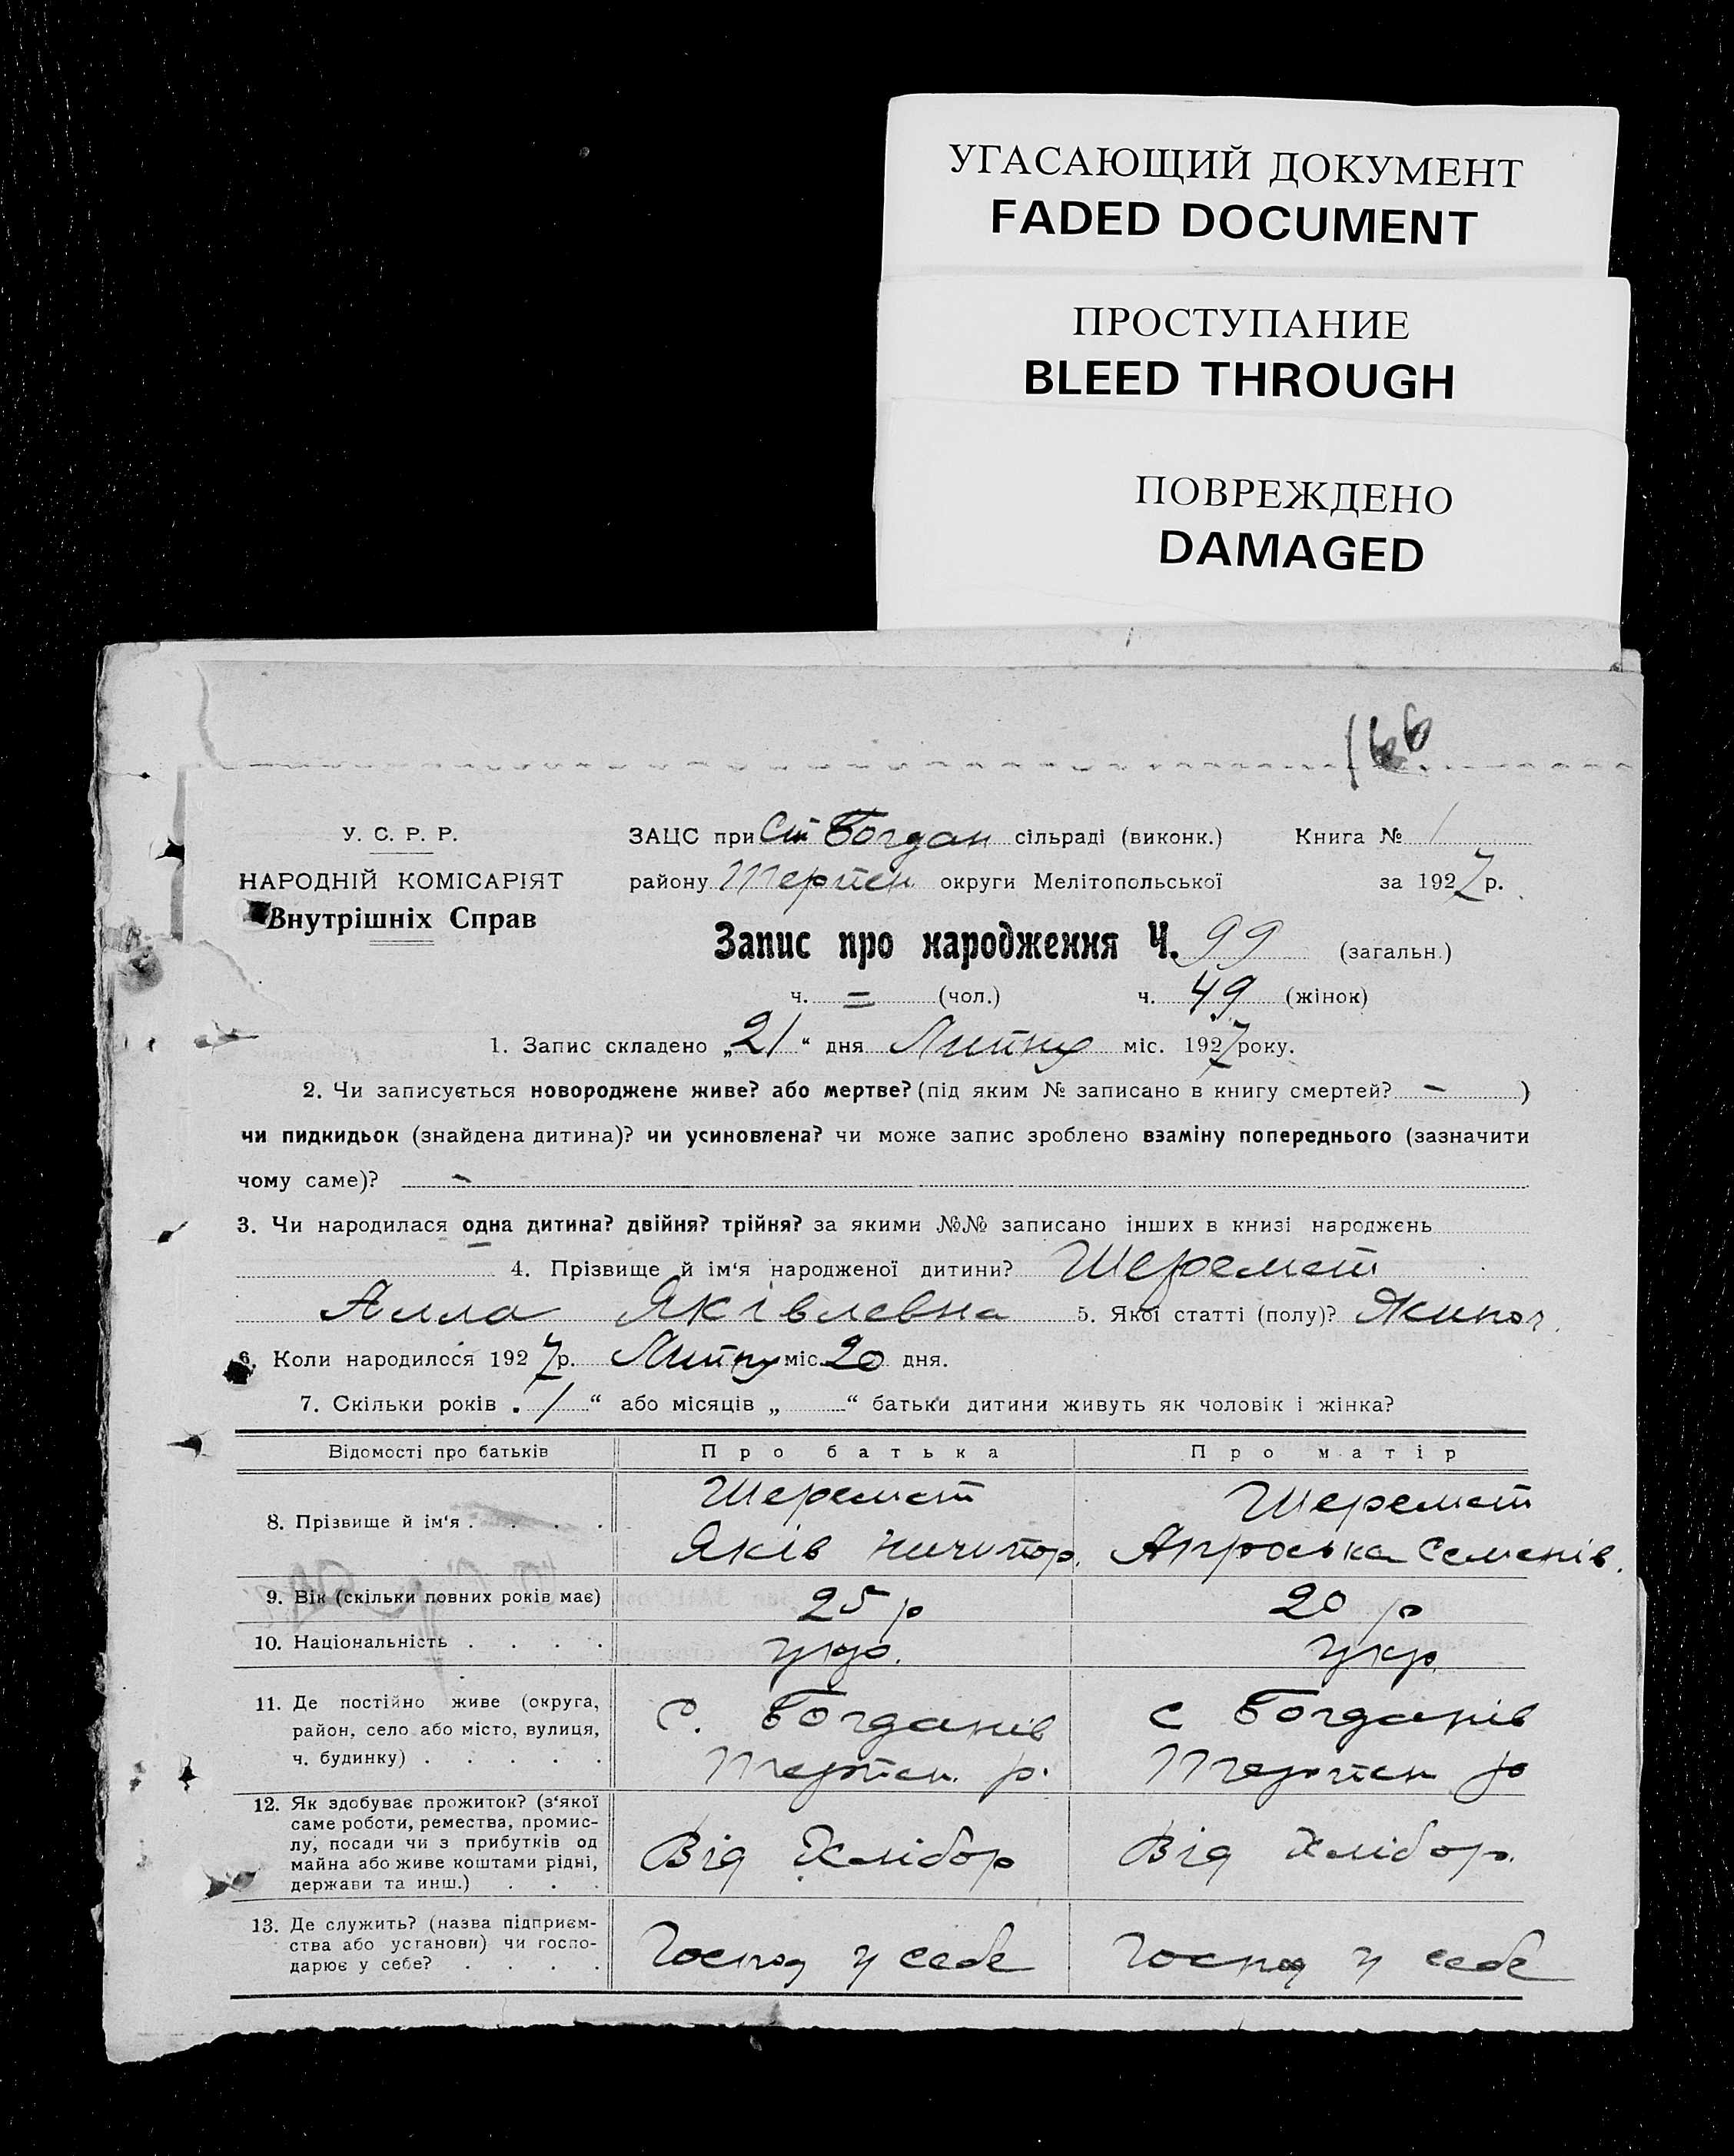 УГАСАЮЩИЙ ДОКУМЕНТ
FADED DOCUMENT
ПРОСТУПАНИЕ
BLEED THROUGH
ПОВРЕЖДЕНО
DAMAGED
166
У. С. Р. Р.
НАРОДНІЙ КОМІСАРІЯТ
Внутрішніх Справ
ЗАЦС при Богдан сільраді (виконк.) Книга № 1
району Терпен округи Мелітопольської за 1927 р.
Запис про народження Ч. 99 (загальн.)
ч. = (чол.) ч. 49 (жінок)
1. Запис складено „21“ дня Липну міс. 1927 року.
2. Чи записується новороджене живе? або мертве? (під яким № записано в книгу смертей? - )
чи пидкидьок (знайдена дитина)? чи усиновлена? чи може запис зроблено взаміну попереднього (зазначити
чому саме)? -
3. Чи народилася одна дитина? двійня? трійня? за якими №№ записано інших в книзі народжень
4. Прізвище й ім‘я народженої дитини? Шеремет
Алла Яківлевна 5. Якої статті (полу)? Жиноч.
6. Коли народилося 1927 р. Липну міс. 20 дня.
7. Скільки років „ 1 “ або місяців „ “ батьки дитини живуть як чоловік і жінка?
Відомості про батьків Про батька Про матір
8. Прізвище й ім‘я . . . . Шеремет Шеремет
Яків Ничипор. Апроська Семенів.
9. Вік (скільки повних років має) 25 р 20 р
10. Національність . . . . укр. укр.
11. Де постійно живе (округа, район, село або місто, вулиця, ч. будинку) . . . . . С. Богданів Терпен. р. с Богданів Терпен р
12. Як здобуває прожиток? (з‘якої саме роботи, ремества, промислу, посади чи з прибутків од майна або живе коштами рідні, держави та инш.) . . . Від Хлібор Від Хлібор.
13. Де служить? (назва підприємства або установи) чи господарює у себе? . . . . Господ у себе Господ у себе